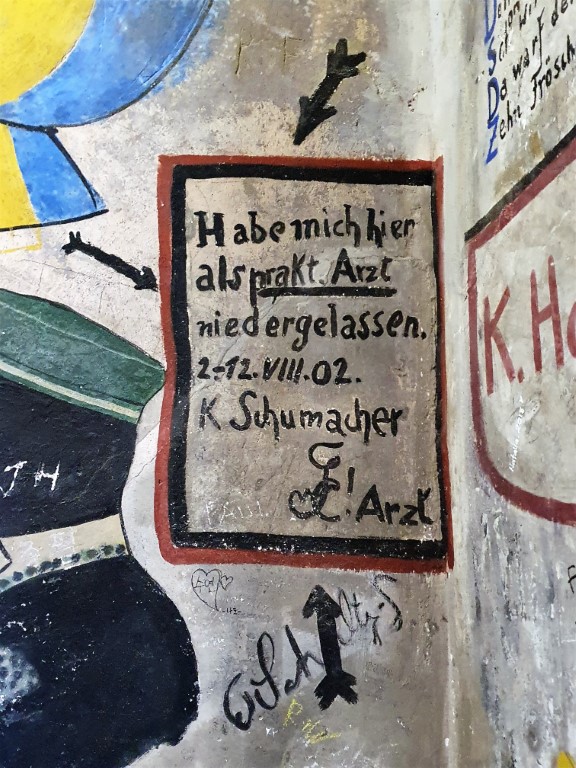 Habe mich hier
als prakt. Arzt
niedergelassen.
2-12.VIII.02.
K Schumacher
! Arzt
PAUL
JH
K. Ho
Da warf de
Zehn Frösch